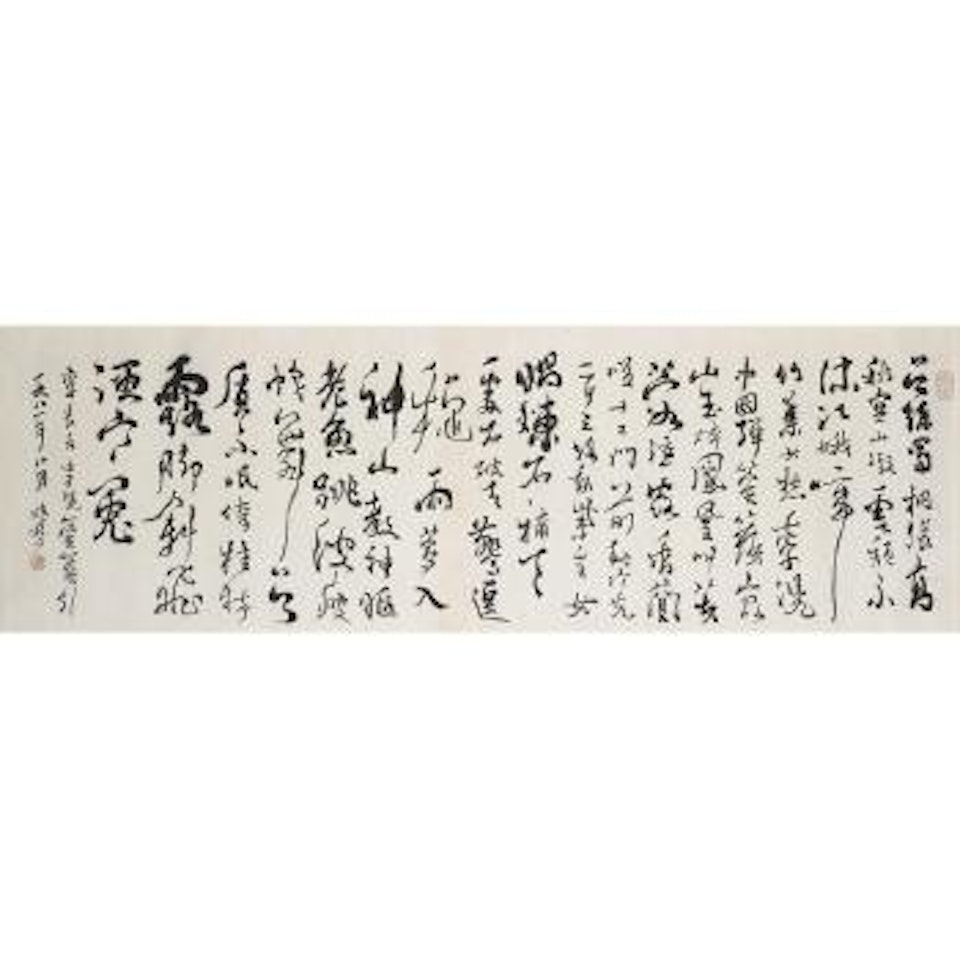 吳絲蜀桐張高
秋空山凝雲頹不
流江娥啼
竹素女愁李憑
中國彈箜篌崑
山玉碎鳳凰叫芙
蓉泣露香蘭
笑十二門前融冷光
二十三絲動紫皇女
媧煉石補天
處石破天驚逗
秋雨夢入
神山教神嫗
老魚跳波瘦
蛟舞吳
質不眠倚桂樹
露腳斜飛
濕寒兔
李憑箜篌引
一九八一年八月